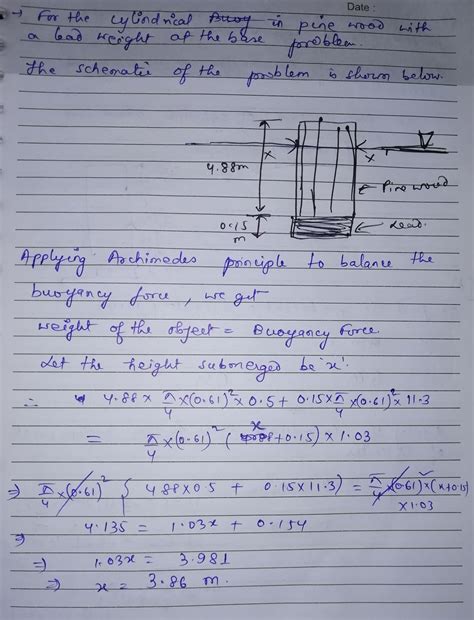 Date :
→ For the cylindrical Buoy in pine wood with
a lead weight at the base problem.
The schematic of the problem is shown below.
4.88m
x
x
Pine wood
0.15
m
Lead.
Applying Archimedes principle to balance the
buoyancy force, we get
weight of the object = Buoyancy Force.
Let the height submerged be 'x'.
∴ 4.88 × π/4 ×(0.61)² × 0.5 + 0.15×π/4 ×(0.61)²× 11.3
= π/4 ×(0.61)² ( x +0.15) × 1.03
⇒ π/4 ×(0.61)² { 4.88×0.5 + 0.15×11.3) = π/4 ×(0.61)²×(x+0.15)
×1.03
⇒ 4.135 = 1.03x + 0.154
⇒ 1.03x = 3.981
⇒ x = 3.86 m.